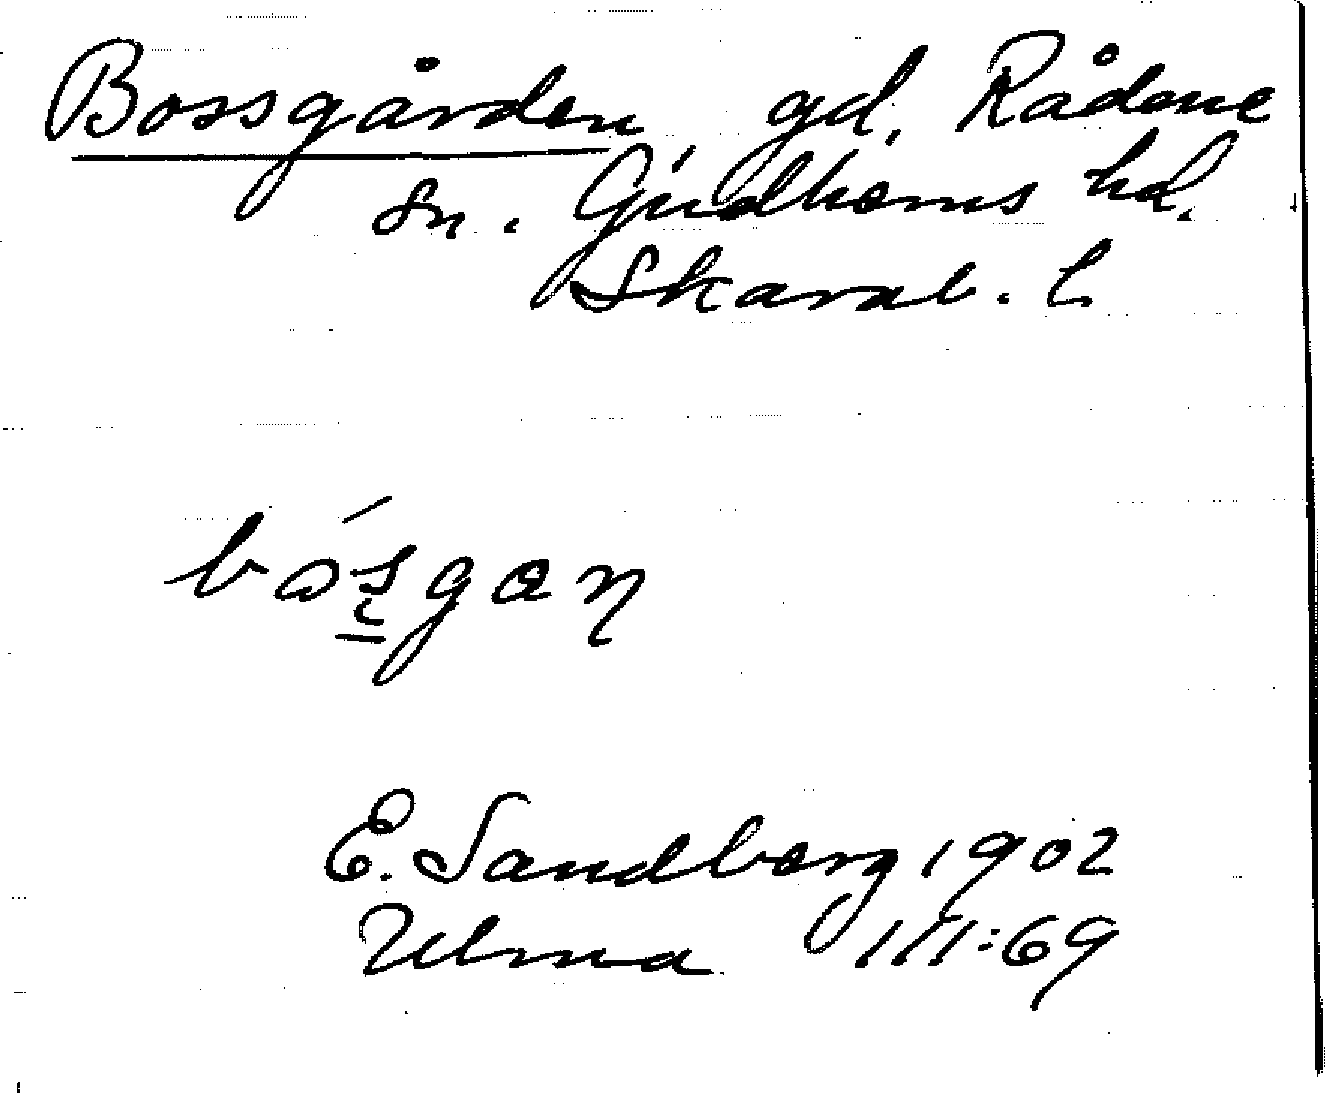 Bossgården gd, Rådene
sn. Gudhems hd.
Skarab. l.
básgaŋ
E. Sandberg 1902
Ulma 111:69